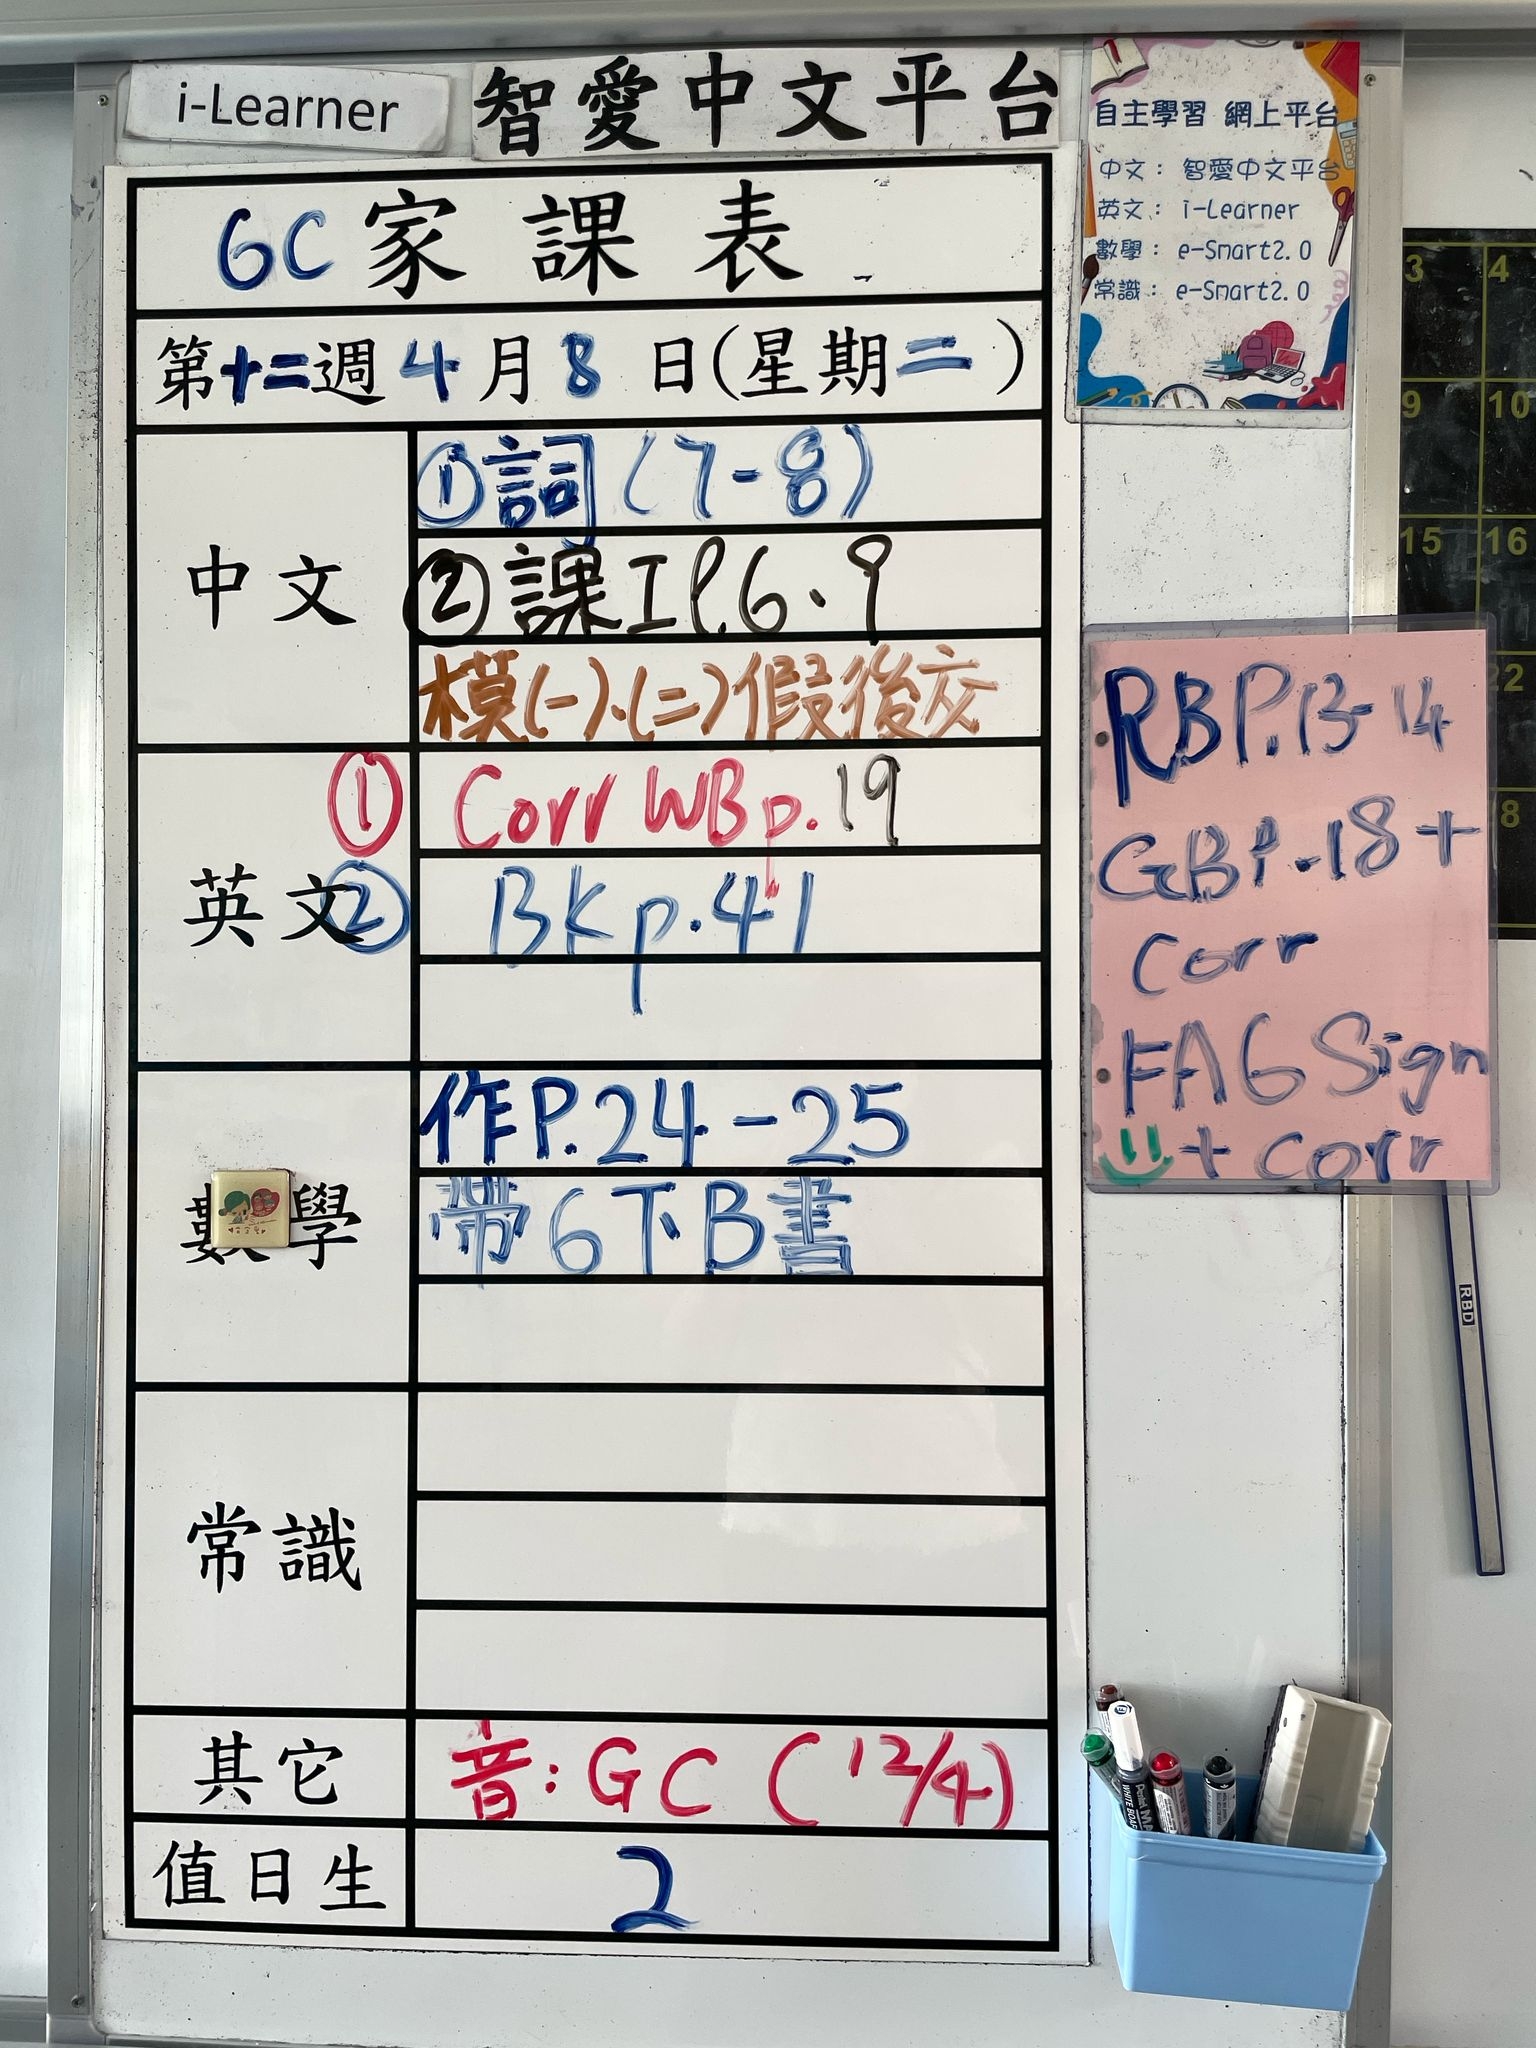 i-Learner 智愛中文平台
自主學習 網上平台
中文： 智愛中文平台
英文： i-Learner
數學： e-Smart2.0
常識： e-Smart2.0
6C 家課表
第十二週 4月8日(星期二)
中文
①詞(7-8)
②課工P.6、9
模(一)、(二)假後交
英文
① Corr WB p.19
② BK p.41
數學
作P.24-25
帶6下B書
常識
其它
音: GC (12/4)
值日生
2
RB P.13-14
GB P.18+
corr
FA6 Sign
+ corr
3 4
9 10
15 16
22
RBD